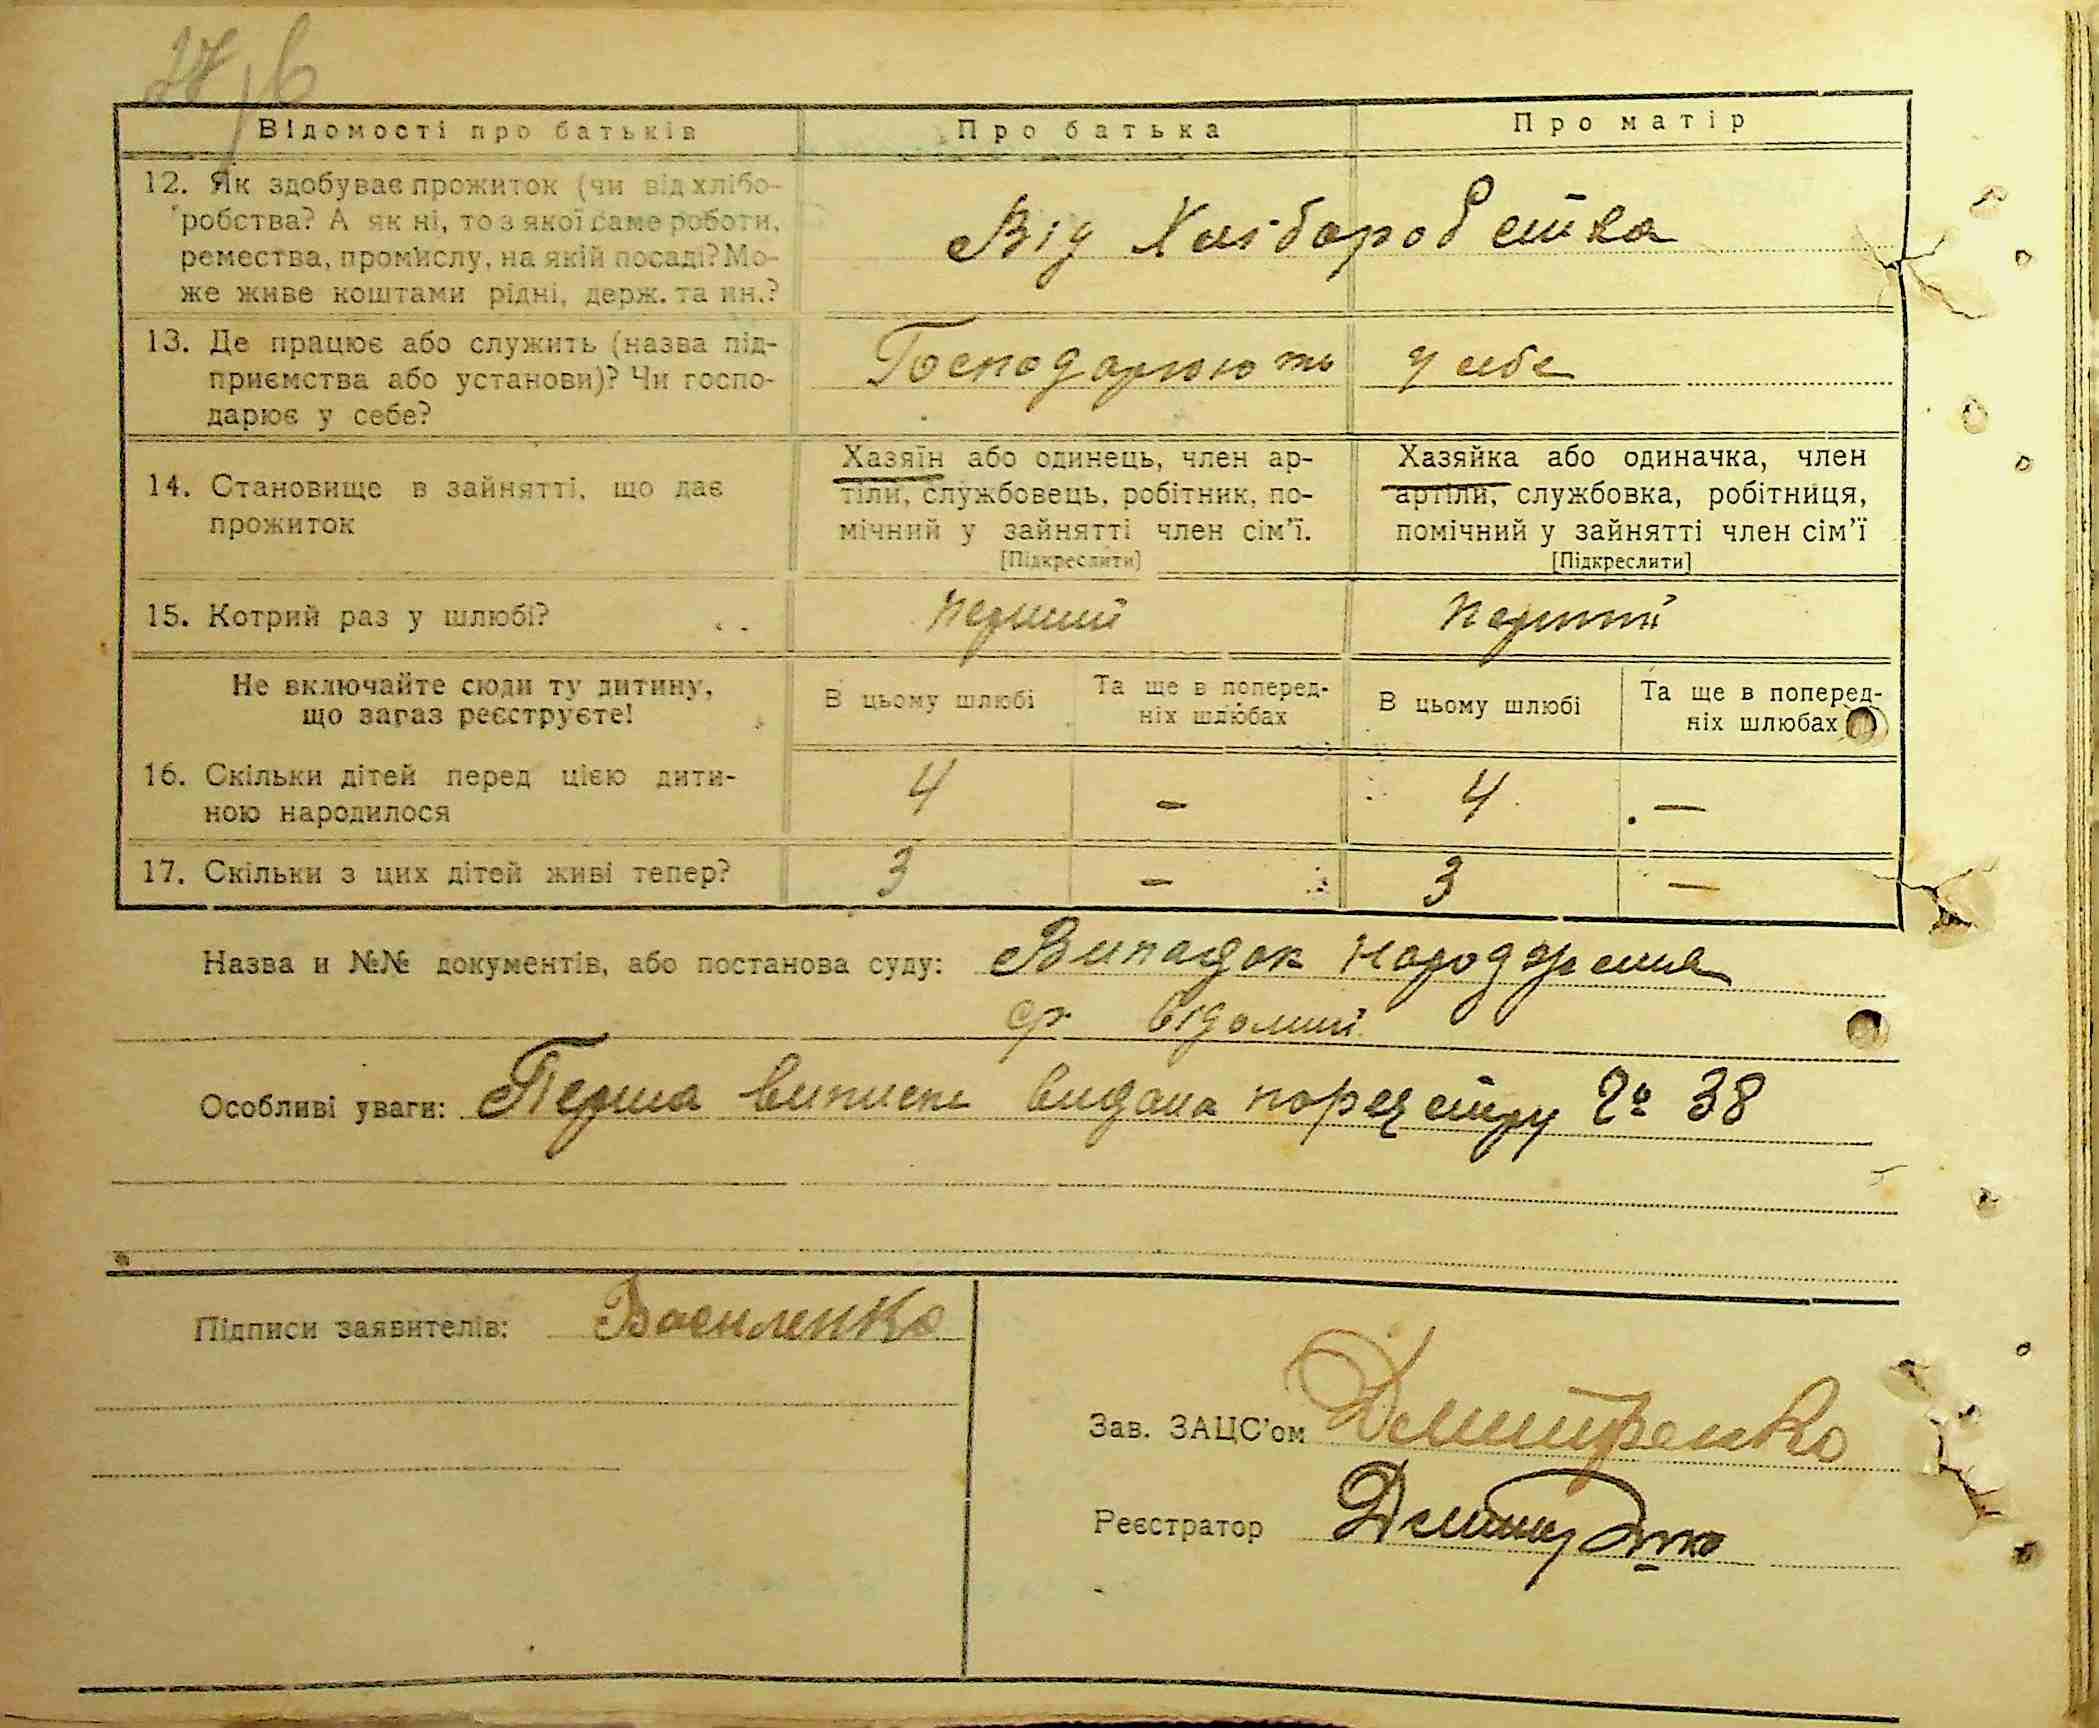 Відомості про батьків Про батька Про матір
12. Як здобуває прожиток (чи від хлібо-
робства? А як ні, то з якої саме роботи,
ремества, промислу, на якій посаді? Мо-
же живе коштами рідні, держ. та ин.?
Від Хлібаробства
13. Де працює або служить (назва під-
приємства або установи)? Чи госпо-
дарює у себе?
Господарюють у себе
14. Становище в зайнятті, що дає
прожиток
Хазяїн або одинець, член ар-
тіли, службовець, робітник, по-
мічний у зайнятті член сім’ї.
[Підкреслити]
Хазяйка або одиначка, член
артіли, службовка, робітниця,
помічний у зайнятті член сім’ї
[Підкреслити]
15. Котрий раз у шлюбі? перший перший
Не включайте сюди ту дитину,
що зараз реєструєте!
В цьому шлюбі
Та ще в поперед-
ніх шлюбах
В цьому шлюбі
Та ще в поперед-
ніх шлюбах
16. Скільки дітей перед цією дити-
ною народилося
4 – 4 –
17. Скільки з цих дітей живі тепер? 3 – 3 –
Назва и №№ документів, або постанова суду: Випадок народження
відомий
Особливі уваги: Перша виписк видана по реєстру № 38
Підписи заявителів: Василенко
Зав. ЗАЦС’ом Дмитренко
Реєстратор